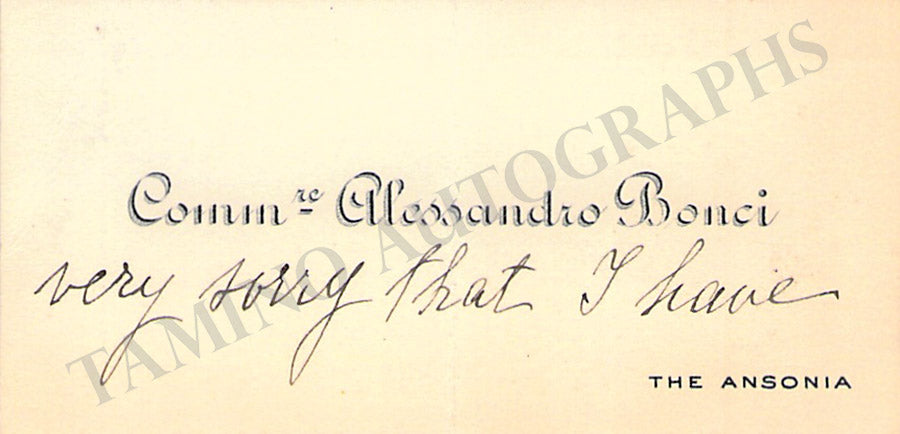 Comm.re Alessandro Bonci
very sorry that I have
THE ANSONIA
TAMINO AUTOGRAPHS